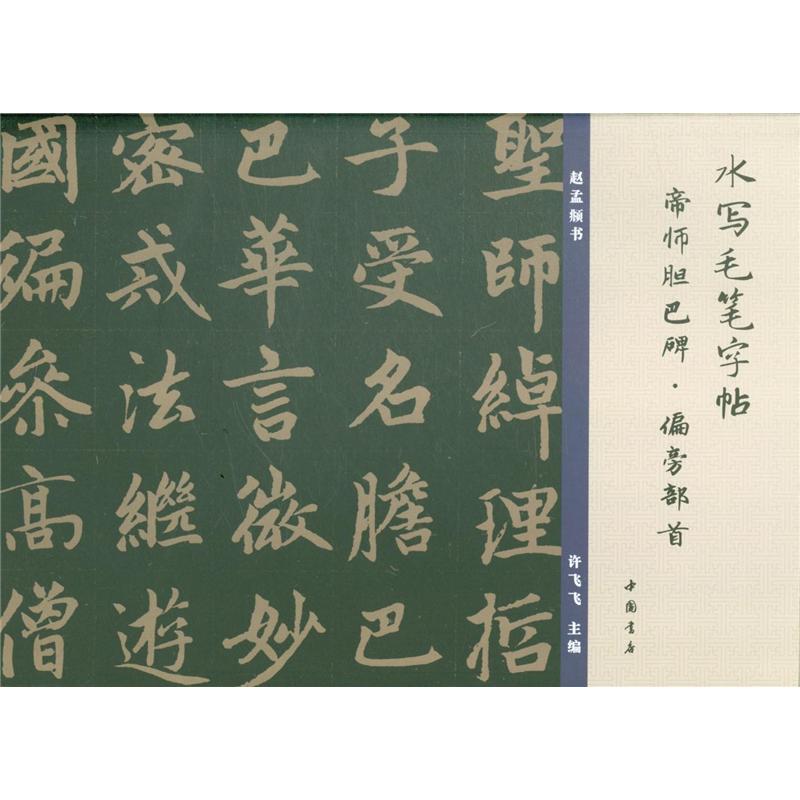 水写毛笔字帖
帝师胆巴碑·偏旁部首
中国书店
赵孟頫书
许飞飞 主编
聖師綽理哲
子受名膽巴
巴華言微妙
密戒法繼遊
國徧參高僧